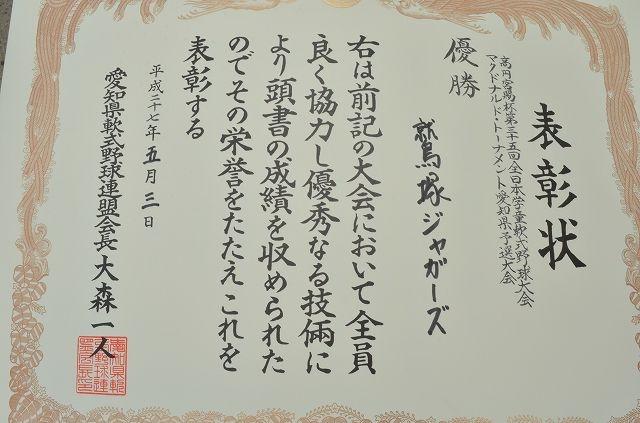 表彰状
高円宮賜杯第三十五回全日本学童軟式野球大会
マクドナルド・トーナメント愛知県予選大会
優勝
鷲塚ジャガーズ
右は前記の大会において全員
良く協力し優秀なる技倆に
より頭書の成績を収められた
のでその栄誉をたたえこれを
表彰する
平成二十七年五月三日
愛知県軟式野球連盟会長大森一人